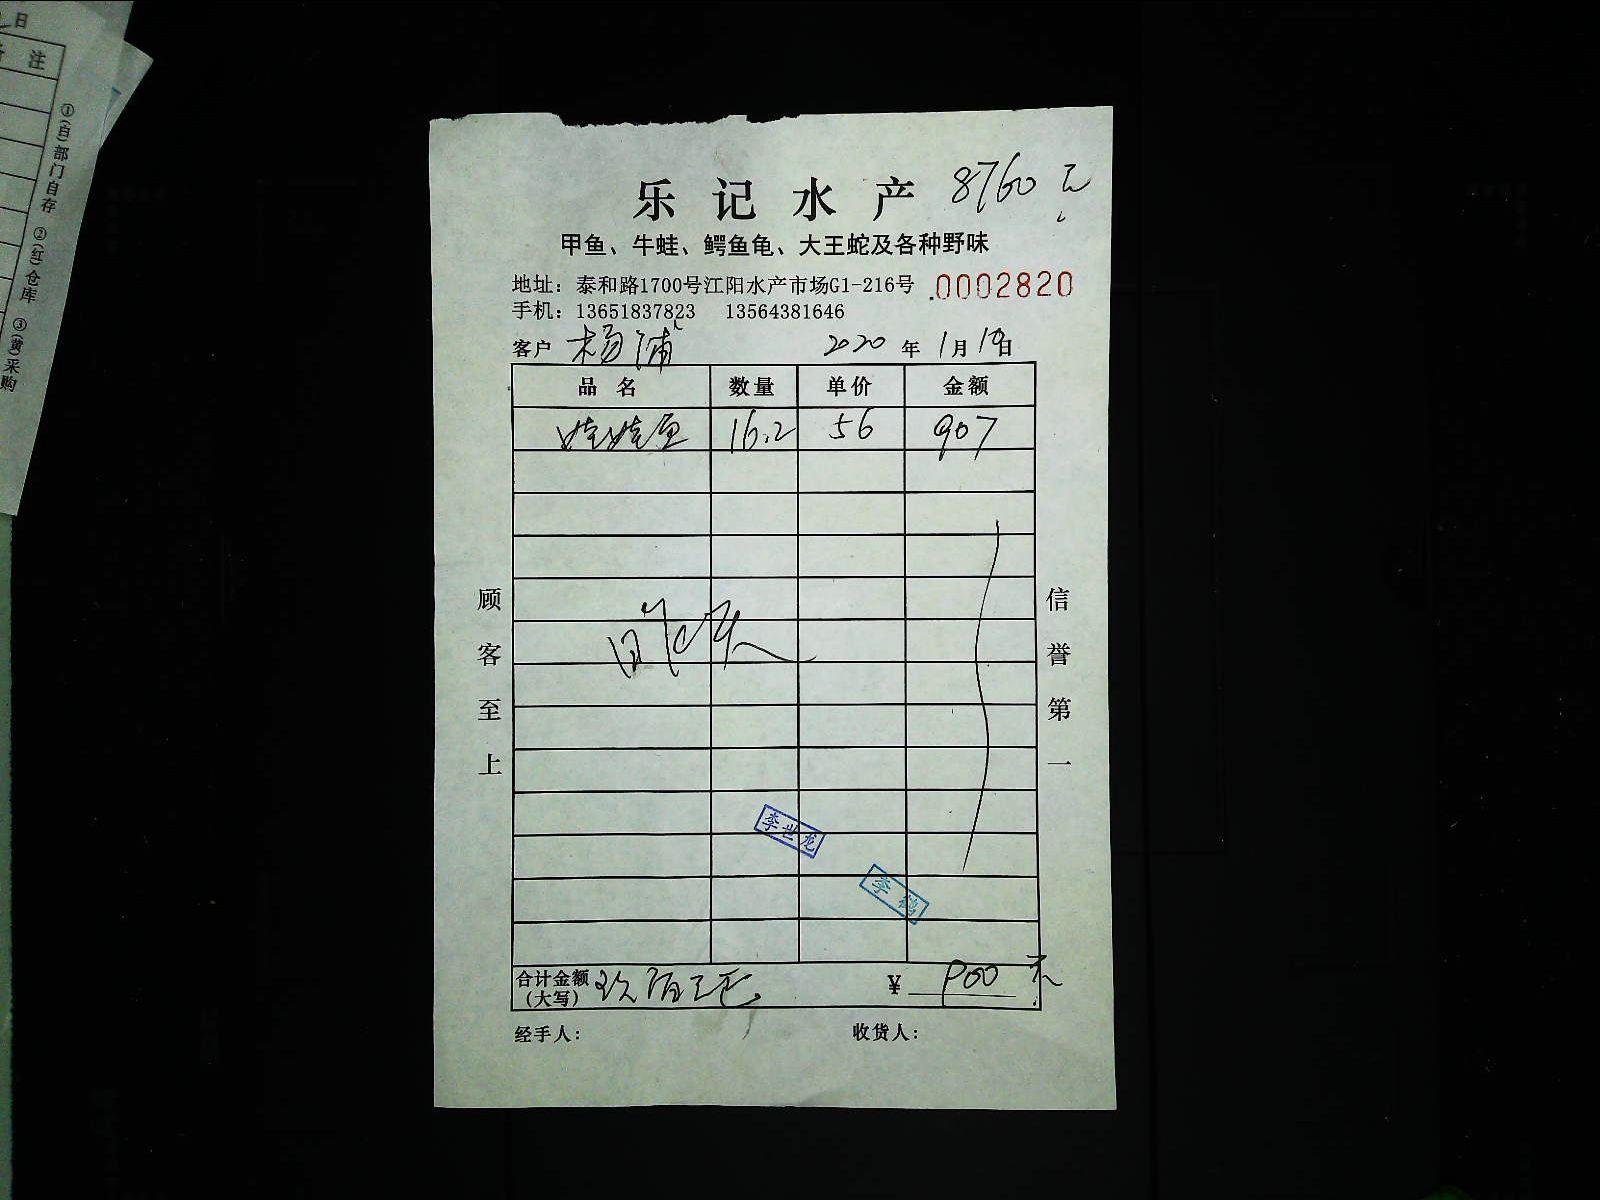 日
备注
①(白)部门自存 ②(红)仓库 ③(黄)采购
8760元
乐记水产
甲鱼、牛蛙、鳄鱼龟、大王蛇及各种野味
地址：泰和路1700号江阳水产市场G1-216号 0002820
手机：13651837823 13564381646
客户 杨浦 2020年1月19日
品名 数量 单价 金额
娃娃鱼 16.2 56 907
昨天
顾客至上
信誉第一
李世龙
李鹤
合计金额(大写) 玖佰元 ¥ 900元
经手人： 收货人：